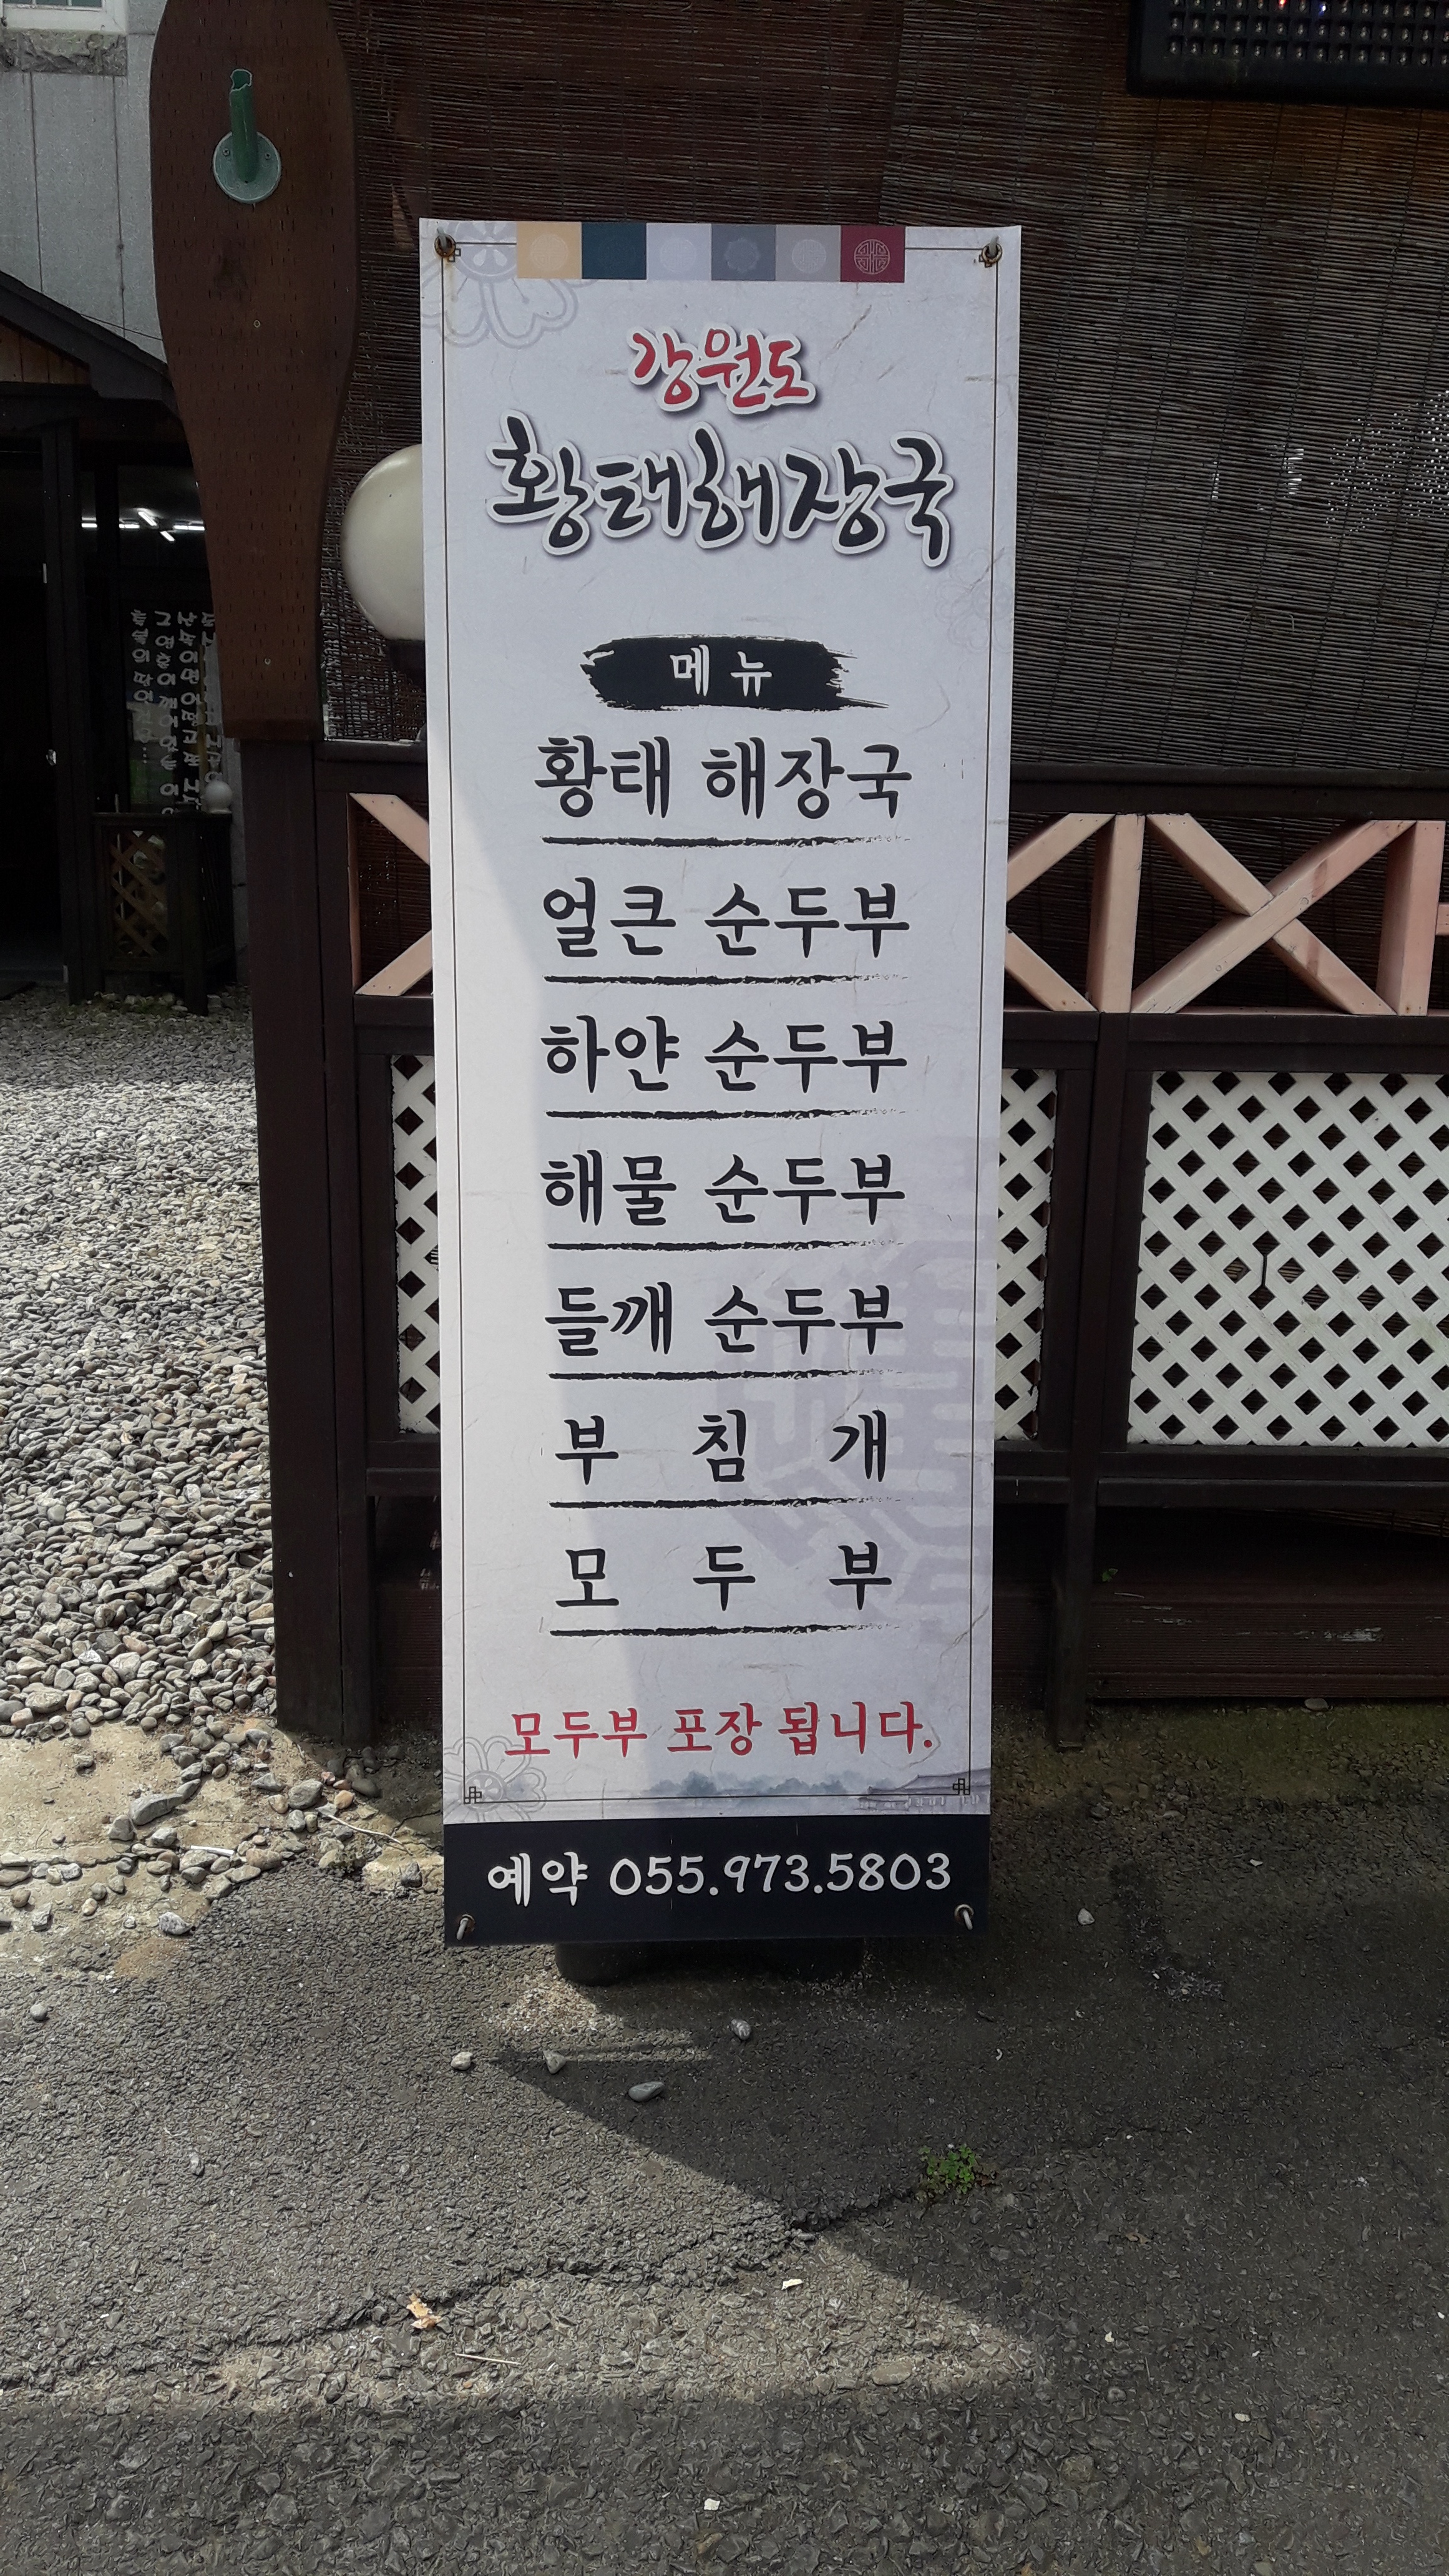 강원도
황태해장국
메뉴
황태 해장국
얼큰 순두부
하얀 순두부
해물 순두부
들깨 순두부
부 침 개
모 두 부
모두부 포장 됩니다.
예약 055.973.5803